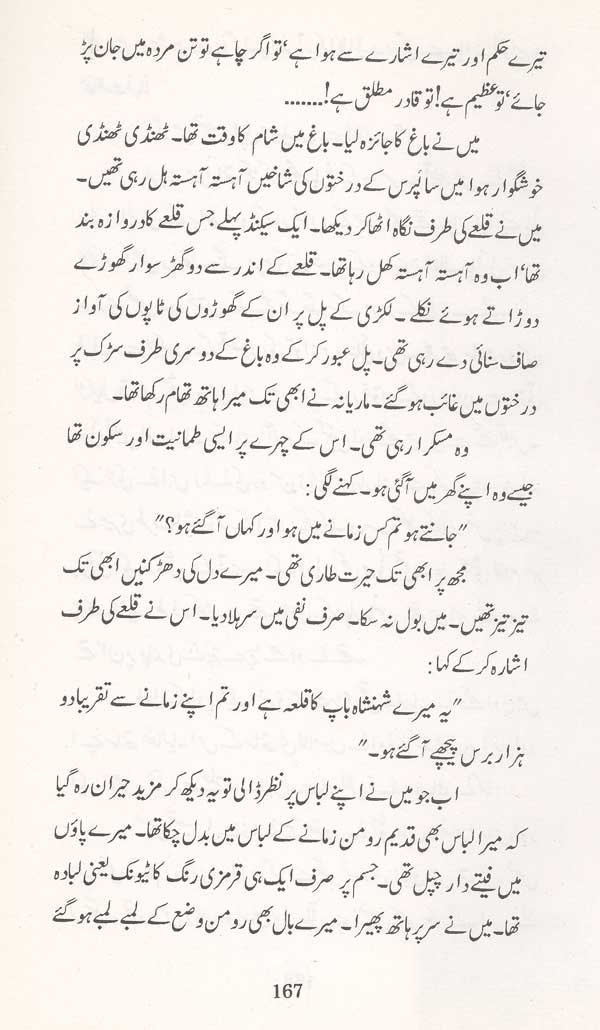 تیرے حکم اور تیرے اشارے سے ہوا ہے‘ تو اگر چاہے تو تن مردہ میں جان پڑ
جائے‘ تو عظیم ہے! تو قادر مطلق ہے!.......
میں نے باغ کا جائزہ لیا۔ باغ میں شام کا وقت تھا۔ ٹھنڈی ٹھنڈی
خوشگوار ہوا میں سائپرس کے درختوں کی شاخیں آہستہ آہستہ ہل رہی تھیں۔
میں نے قلعے کی طرف نگاہ اٹھا کر دیکھا۔ ایک سیکنڈ پہلے جس قلعے کا دروازہ بند
تھا‘ اب وہ آہستہ آہستہ کھل رہا تھا۔ قلعے کے اندر سے دو گھڑ سوار گھوڑے
دوڑاتے ہوئے نکلے ۔ لکڑی کے پل پر ان کے گھوڑوں کی ٹاپوں کی آواز
صاف سنائی دے رہی تھی۔ پل عبور کر کے وہ باغ کے دوسری طرف سڑک پر
درختوں میں غائب ہو گئے۔ ماریانہ نے ابھی تک میرا ہاتھ تھام رکھا تھا۔
وہ مسکرا رہی تھی۔ اس کے چہرے پر ایسی طمانیت اور سکون تھا
جیسے وہ اپنے گھر میں آگئی ہو۔ کہنے لگی :
"جانتے ہو تم کس زمانے میں ہو اور کہاں آگئے ہو؟"
مجھ پر ابھی تک حیرت طاری تھی۔ میرے دل کی دھڑکنیں ابھی تک
تیز تیز تھیں۔ میں بول نہ سکا۔ صرف نفی میں سر ہلا دیا۔ اس نے قلعے کی طرف
اشارہ کر کے کہا :
"یہ میرے شہنشاہ باپ کا قلعہ ہے اور تم اپنے زمانے سے تقریبا دو
ہزار برس پیچھے آگئے ہو۔"
اب جو میں نے اپنے لباس پر نظر ڈالی تو یہ دیکھ کر مزید حیران رہ گیا
کہ میرا لباس بھی قدیم رومن زمانے کے لباس میں بدل چکا تھا۔ میرے پاؤں
میں فیتے دار چپل تھی۔ جسم پر صرف ایک ہی قرمزی رنگ کا ٹیونک یعنی لبادہ
تھا۔ میں نے سر پر ہاتھ پھیرا۔ میرے بال بھی رومن وضع کے لمبے لمبے ہو گئے
167